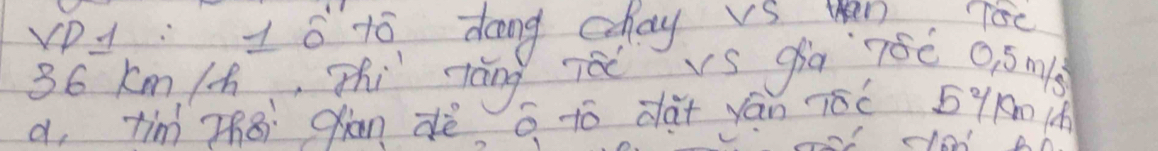 VD1 : 1 ô tô đang chạy vs vận tốc
36 km/h, thì tăng tốc vs gia tốc 0,5m/s²
a, tìm thời gian để ô tô đạt vận tốc 54km/h